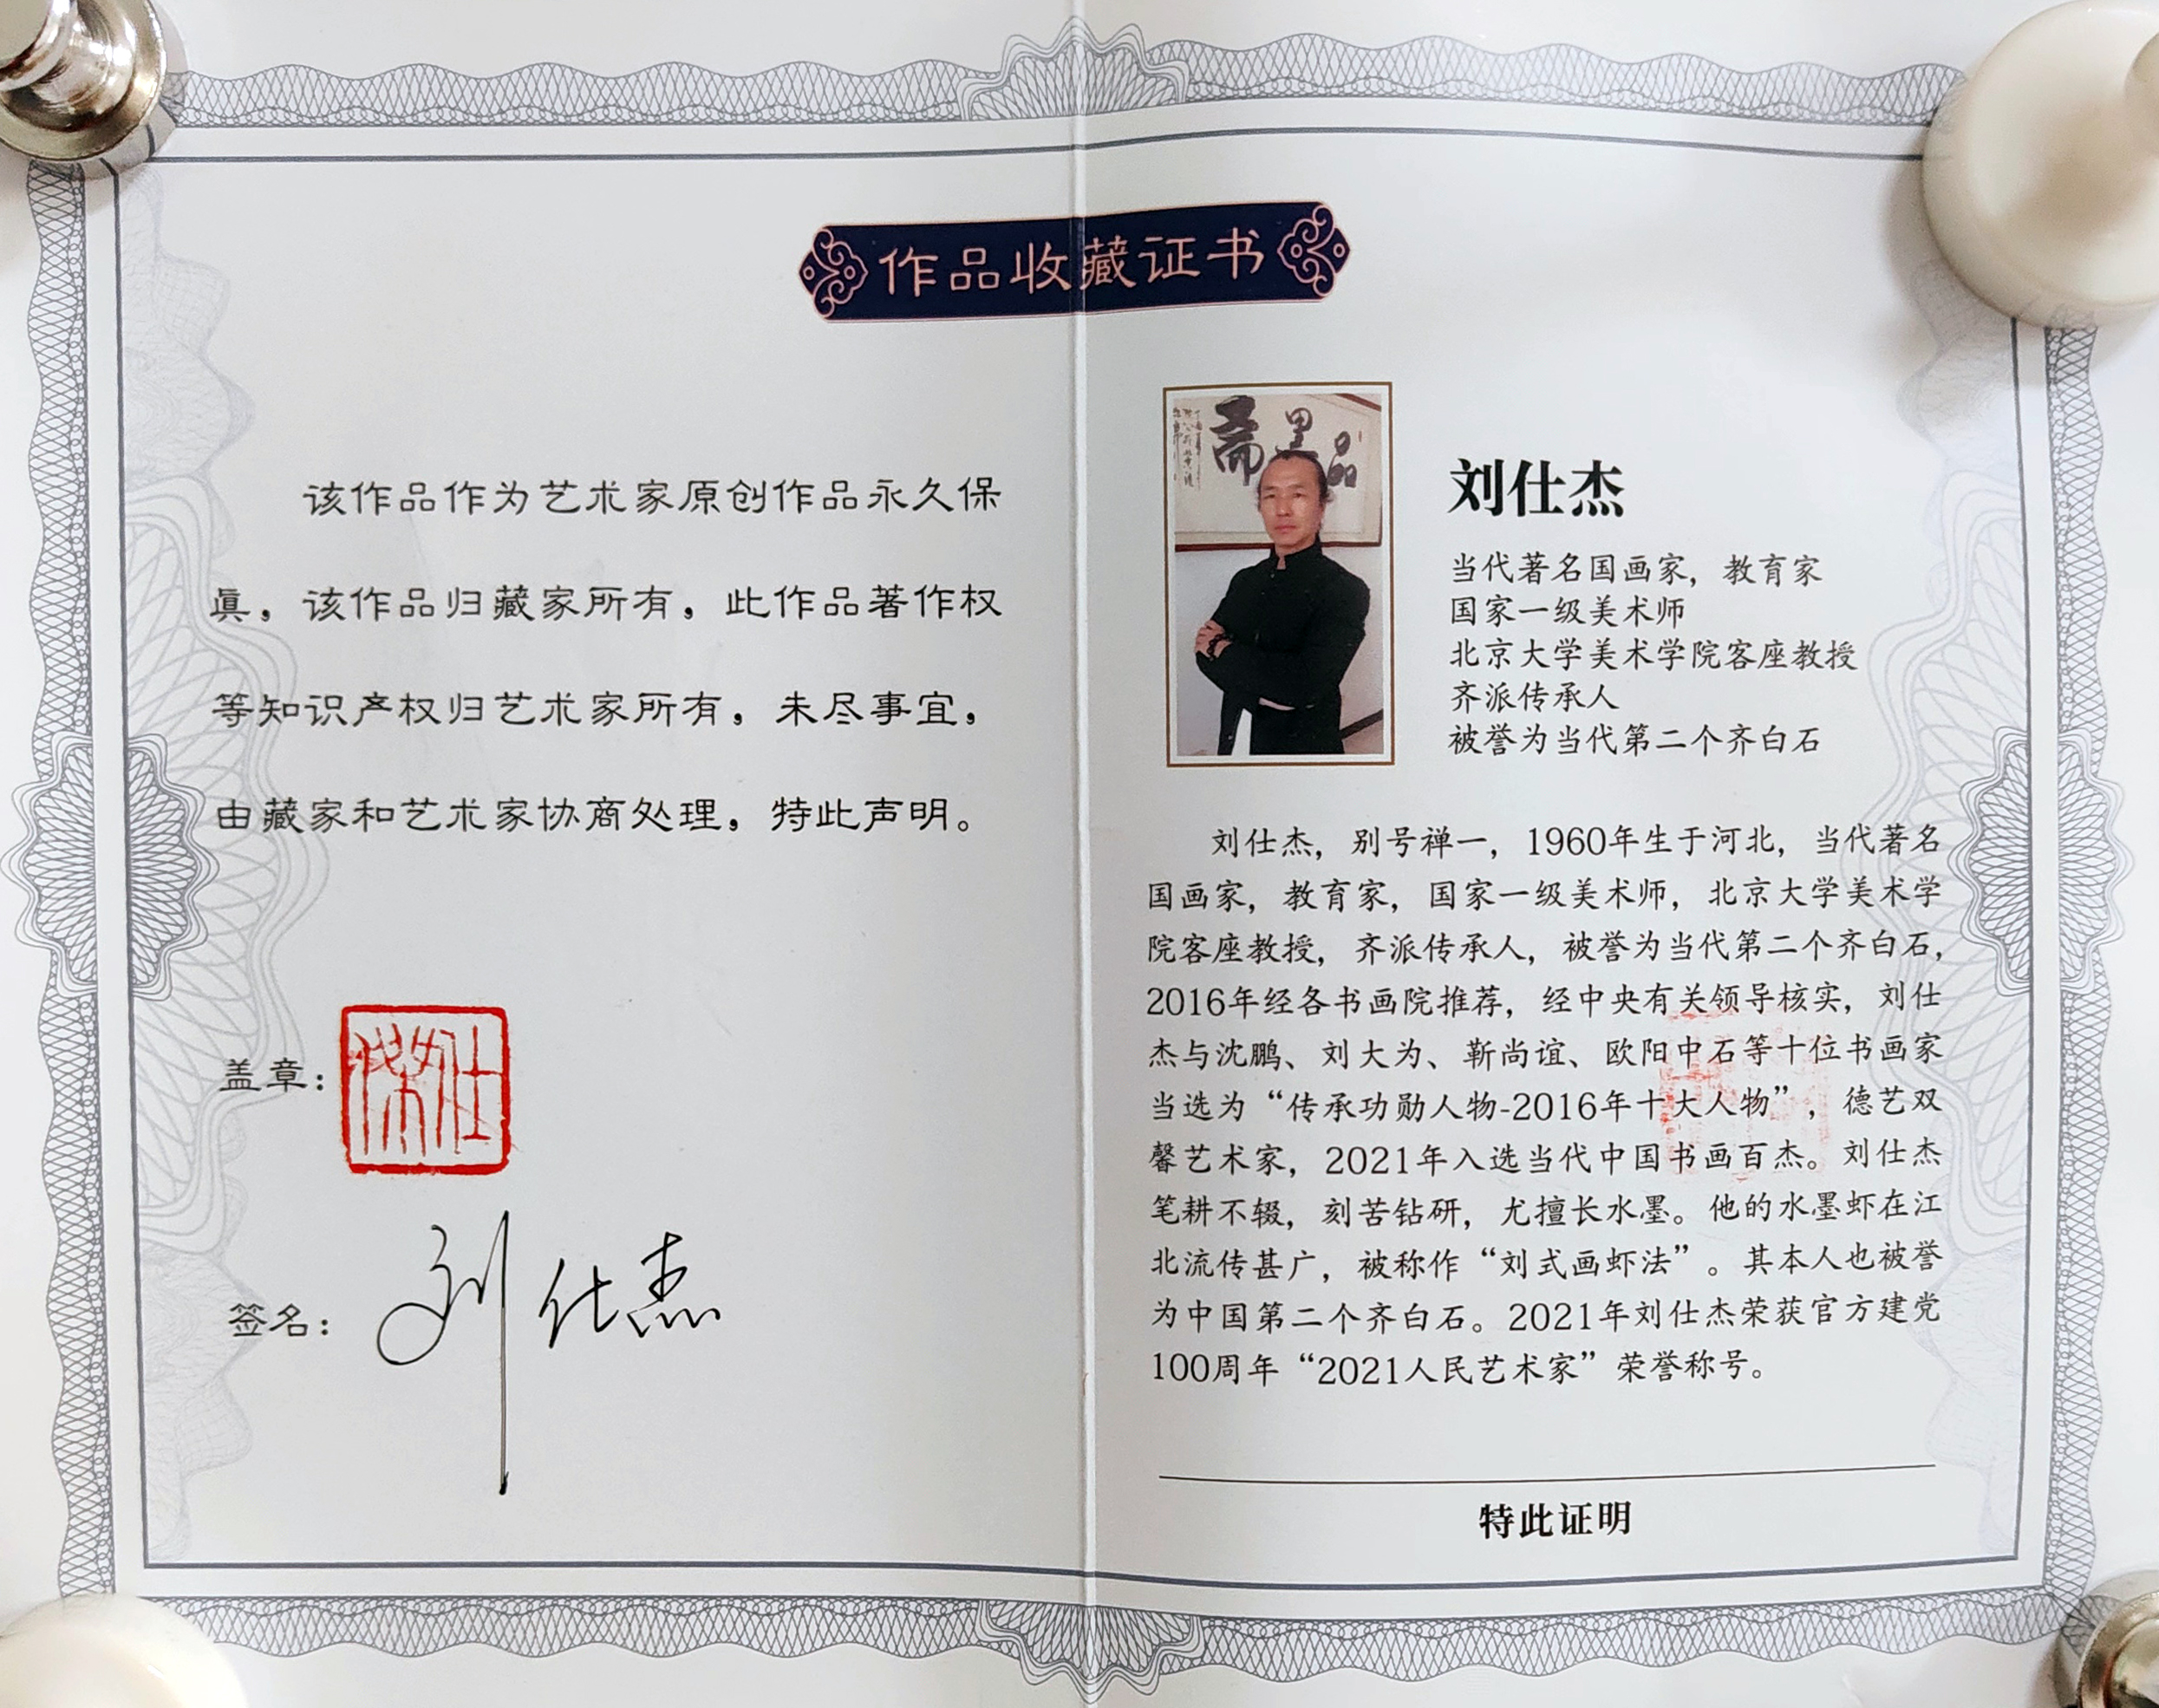 作品收藏证书
该作品作为艺术家原创作品永久保
真，该作品归藏家所有，此作品著作权
等知识产权归艺术家所有，未尽事宜，
由藏家和艺术家协商处理，特此声明。
盖章：
签名：刘仕杰
品墨斋
刘仕杰
当代著名国画家，教育家
国家一级美术师
北京大学美术学院客座教授
齐派传承人
被誉为当代第二个齐白石
刘仕杰，别号禅一，1960年生于河北，当代著名
国画家，教育家，国家一级美术师，北京大学美术学
院客座教授，齐派传承人，被誉为当代第二个齐白石，
2016年经各书画院推荐，经中央有关领导核实，刘仕
杰与沈鹏、刘大为、靳尚谊、欧阳中石等十位书画家
当选为“传承功勋人物-2016年十大人物”，德艺双
馨艺术家，2021年入选当代中国书画百杰。刘仕杰
笔耕不辍，刻苦钻研，尤擅长水墨。他的水墨虾在江
北流传甚广，被称作“刘式画虾法”。其本人也被誉
为中国第二个齐白石。2021年刘仕杰荣获官方建党
100周年“2021人民艺术家”荣誉称号。
特此证明